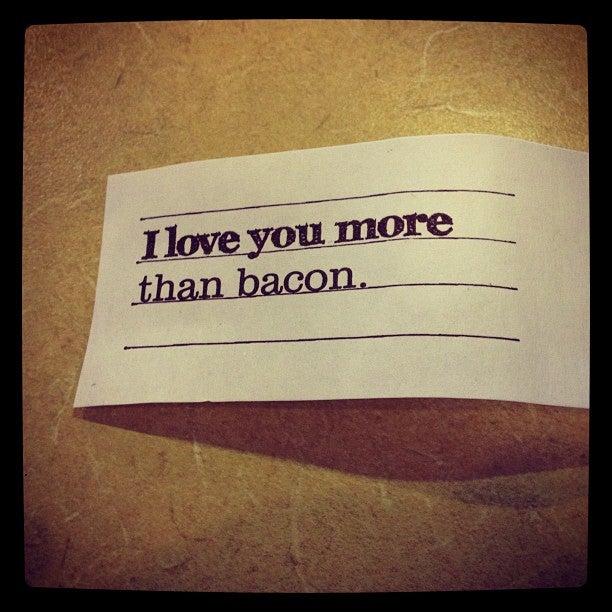 I love you more
than bacon.